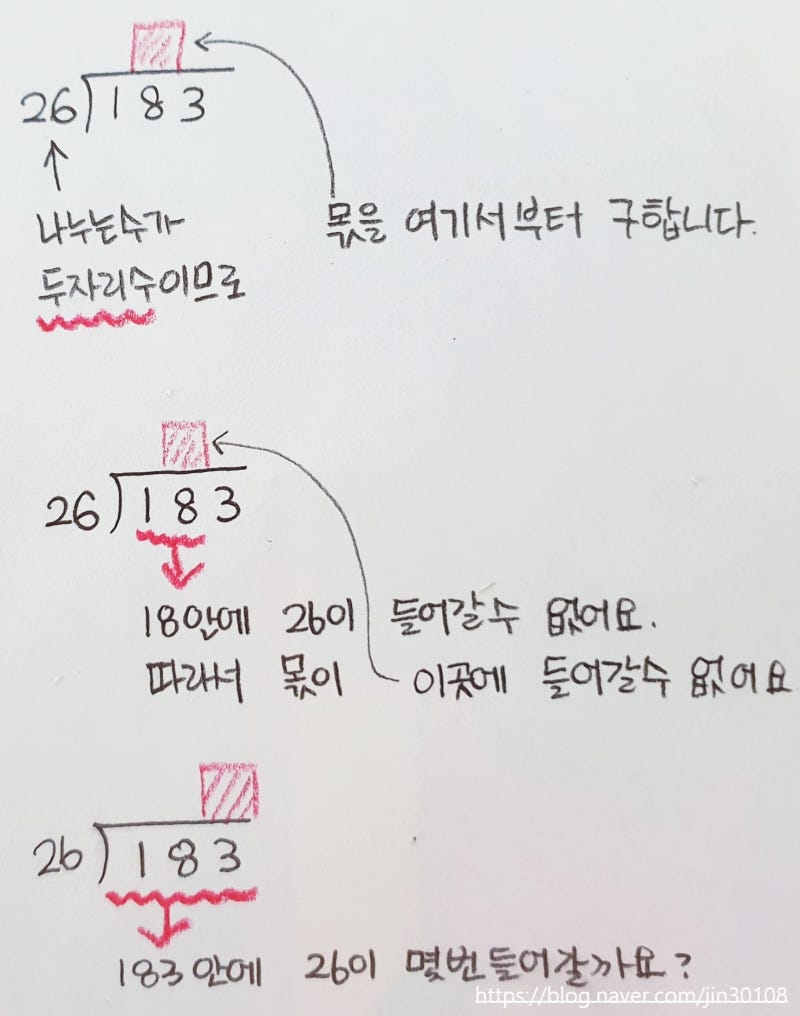 26 ) 183
나누는수가
두자리수이므로
몫을 여기서부터 구합니다.
26 ) 183
18안에 26이 들어갈수 없어요.
따라서 몫이 이곳에 들어갈수 없어요
26 ) 183
183안에 26이 몇번들어갈까요?
https://blog.naver.com/jin30108